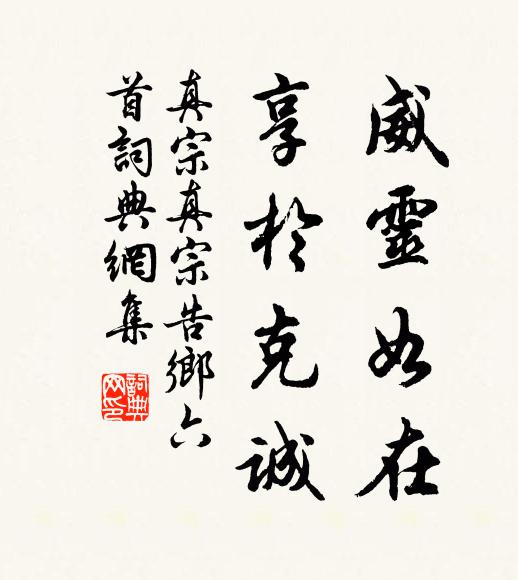 威靈如在
享於克誠
真宗真宗告鄉六
首詞典網集
詞典
网印